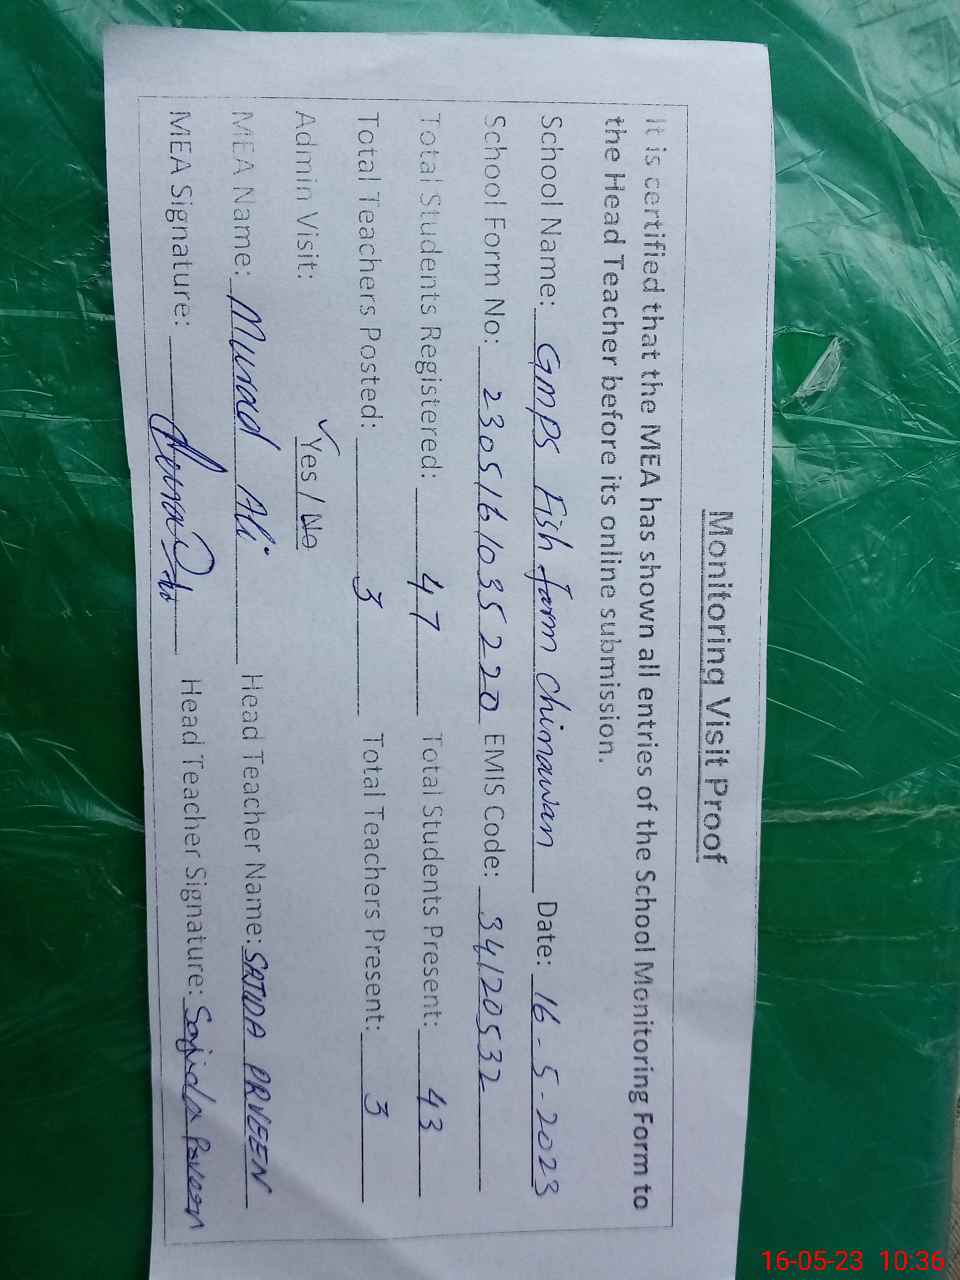 Monitoring Visit Proof
It is certified that the MEA has shown all entries of the School Monitoring Form to
the Head Teacher before its online submission.
School Name: GMPS Fish farm Chinawan Date: 16-5-2023
School Form No: 2305161035220 EMIS Code: 34120532
Total Students Registered: 47 Total Students Present: 43
Total Teachers Posted: 3 Total Teachers Present: 3
Admin Visit: ✓Yes / No
MEA Name: Murad Ali Head Teacher Name: SAJIDA PRVEEN
MEA Signature: Head Teacher Signature: Sajida Praveen
16-05-23 10:36